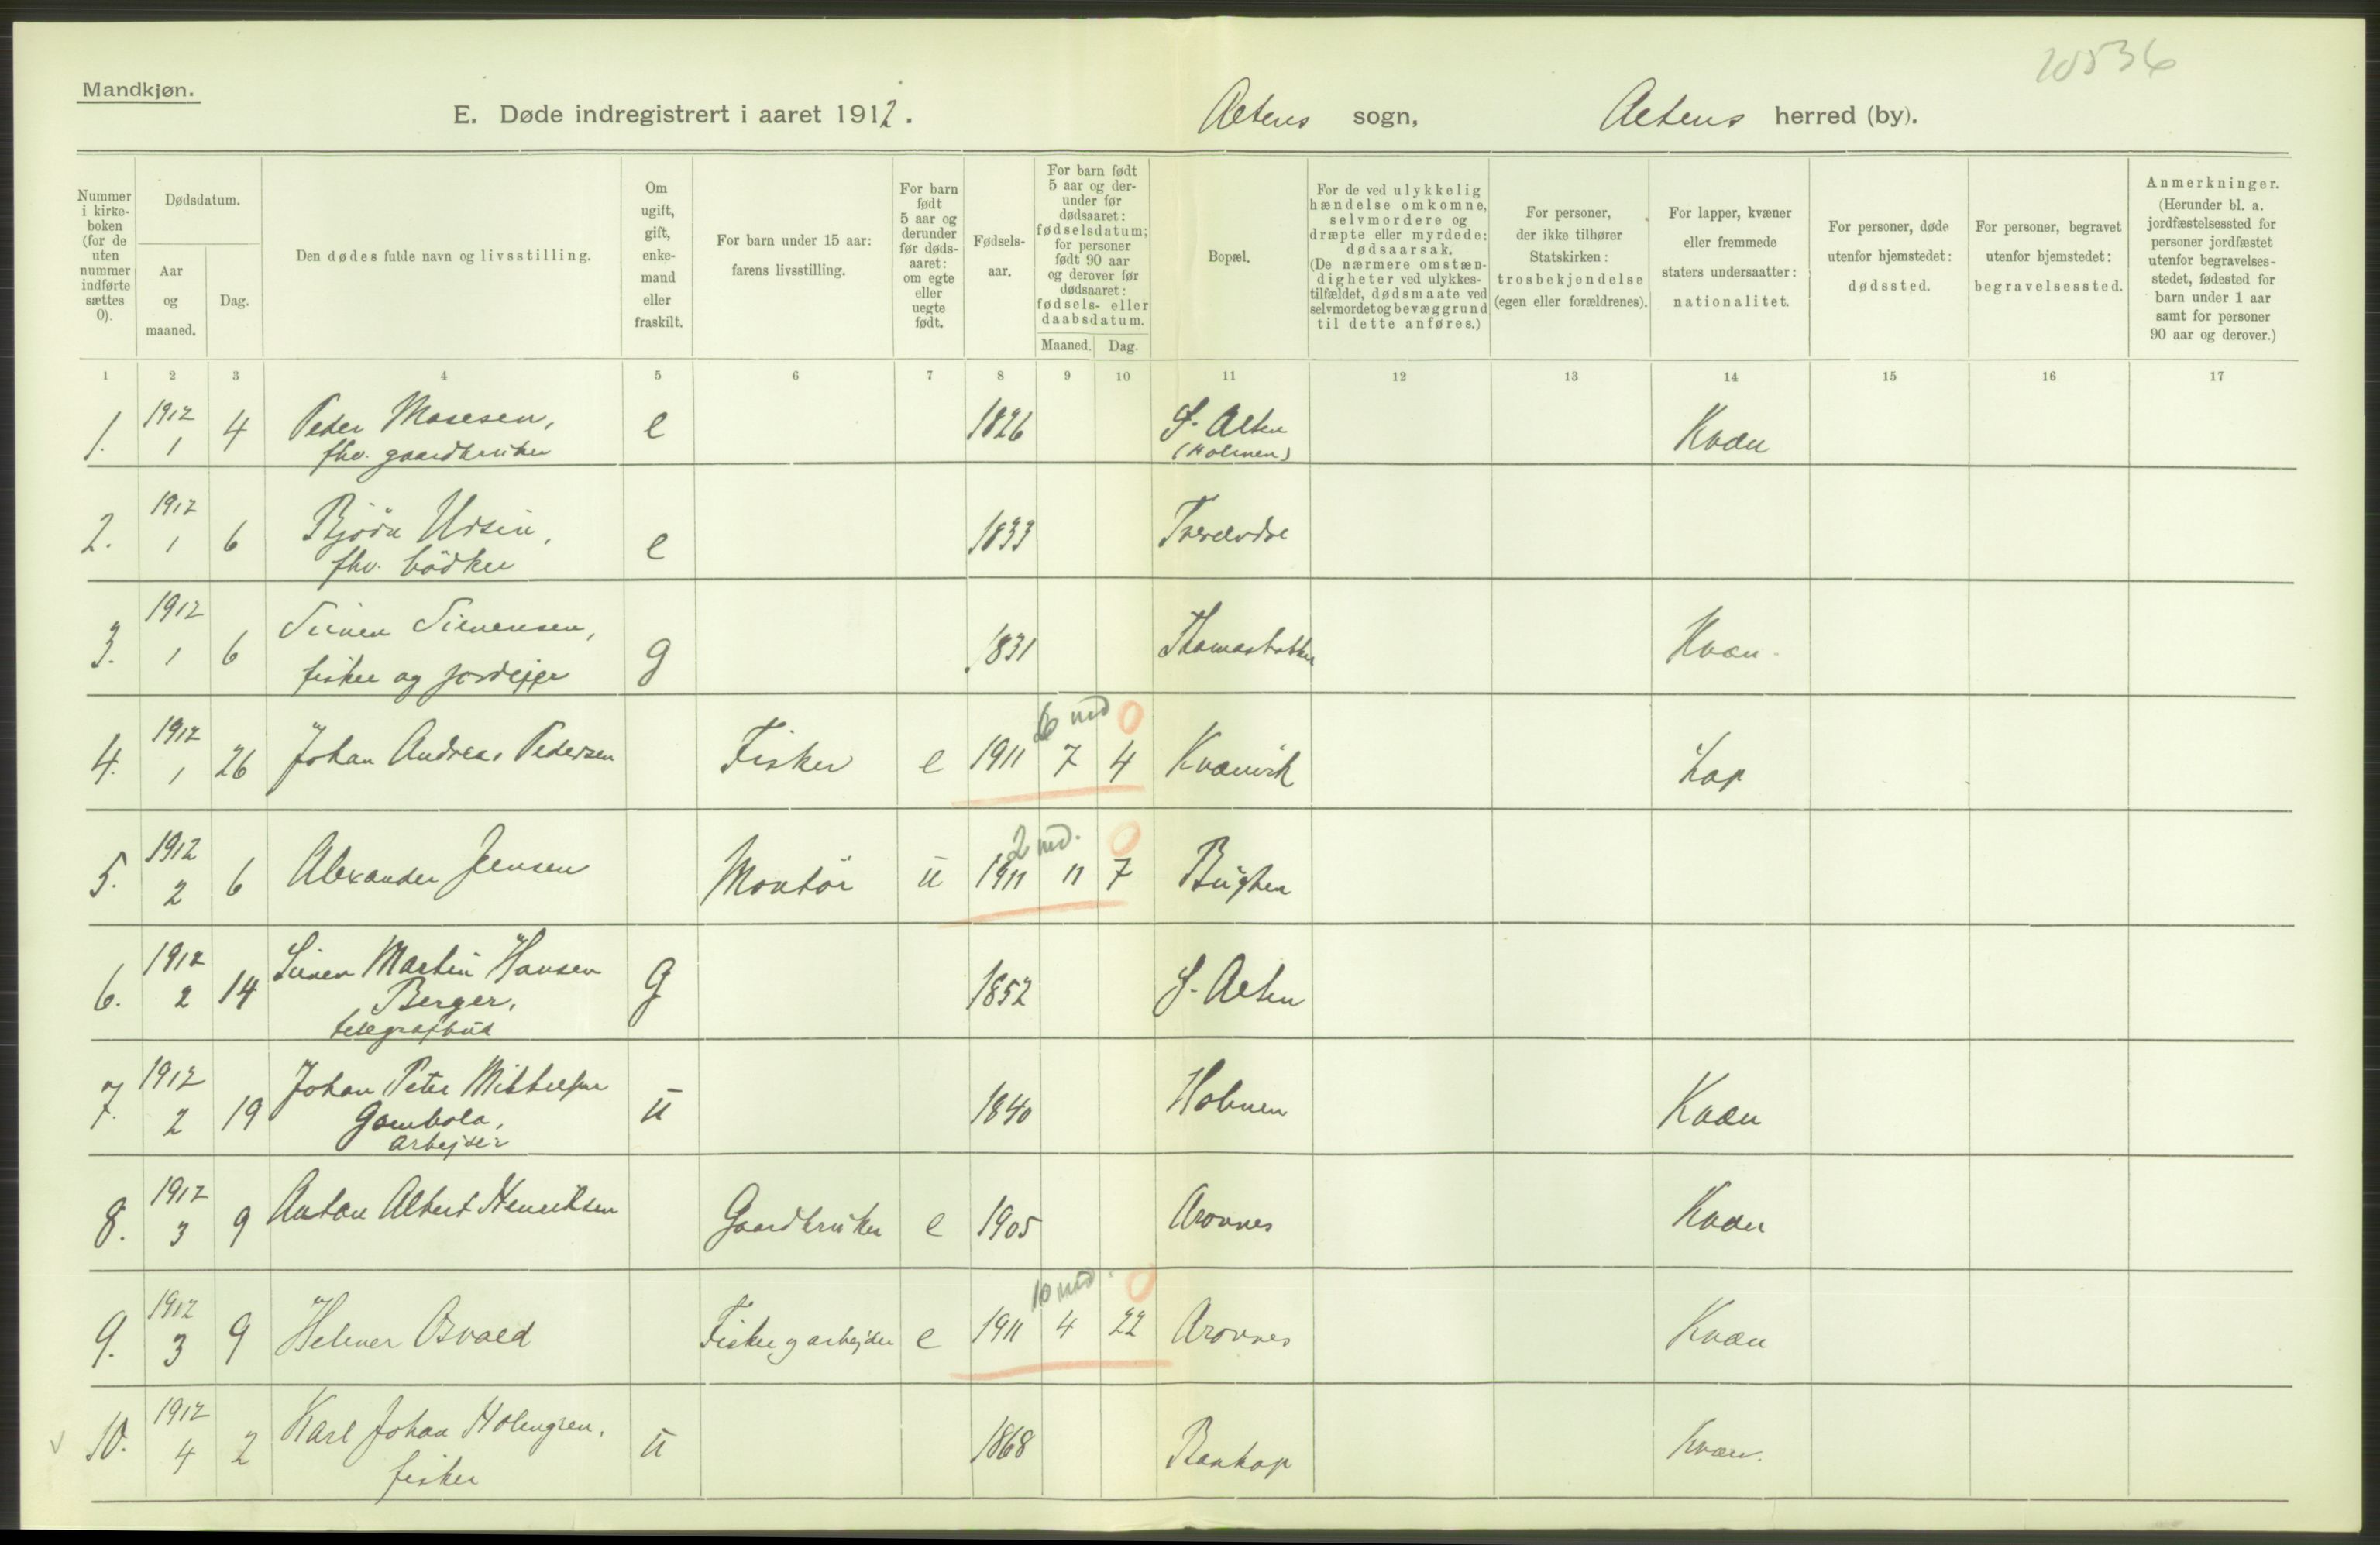 20536
Mandkjøn.
E. Døde indregistrert i aaret 1912.
Altens sogn,
Altens herred (by).
Nummer i kirke-boken (for de uten nummer indførte sættes 0).
Dødsdatum.
Aar og maaned.
Dag.
Den dødes fulde navn og livsstilling.
Om ugift, gift, enke-mand eller fraskilt.
For barn under 15 aar: farens livsstilling.
For barn født 5 aar og derunder før døds-aaret: om egte eller uegte født.
Fødsels-aar.
For barn født 5 aar og der-under før dødsaaret: fødselsdatum; for personer født 90 aar og derover før dødsaaret: fødsels- eller daabsdatum.
Maaned.
Dag.
Bopæl.
For de ved ulykkelig hændelse omkomne, selvmordere og dræpte eller myrdede: dødsaarsak. (De nærmere omstæn-digheter ved ulykkes-tilfældet, dødsmaate ved selvmordet og bevæggrund til dette anføres.)
For personer, der ikke tilhører Statskirken: trosbekjendelse (egen eller forældrenes).
For lapper, kvæner eller fremmede staters undersaatter: nationalitet.
For personer, døde utenfor hjemstedet: dødssted.
For personer, begravet utenfor hjemstedet: begravelsessted.
Anmerkninger. (Herunder bl. a. jordfæstelsessted for personer jordfæstet utenfor begravelses-stedet, fødested for barn under 1 aar samt for personer 90 aar og derover.)
1 2 3 4 5 6 7 8 9 10 11 12 13 14 15 16 17
1. 1912 1 4 Peder Mosesen, e 1826 S. Alten Kvæn
fhv. gaardbruker (Holmen)
2. 1912 1 6 Bjørn Ursin, e 1833 Tverelvdal
fhv. bödker
3. 1912 1 6 Siver Sivensen, g 1831 Thomasbakken Kvæn.
fisker og jordejer
6 md 0
4. 1912 1 26 Johan Andreas Pedersen Fisker e 1911 7 4 Kvænvik Lap
2 md. 0
5. 1912 2 6 Alexander Jensen Montör ū 1911 11 7 Bugten
6. 1912 2 14 Siver Martin Hansen g 1852 S. Alten
Berger,
telegrafbud
7. 1912 2 19 Johan Peter Mikkelsen ū 1840 Holmen Kvæn
Gambola,
arbejder
8. 1912 3 9 Anton Albert Henriksen Gaardbruker e 1905 Aronnes Kvæn
10 md. 0
9. 1912 3 9 Helmer Osvald Fisker g arbejder e 1911 4 22 Aronnes Kvæn
10. 1912 4 2 Karl Johan Holmgren, ū 1868 Rankop Kvæn.
fisker